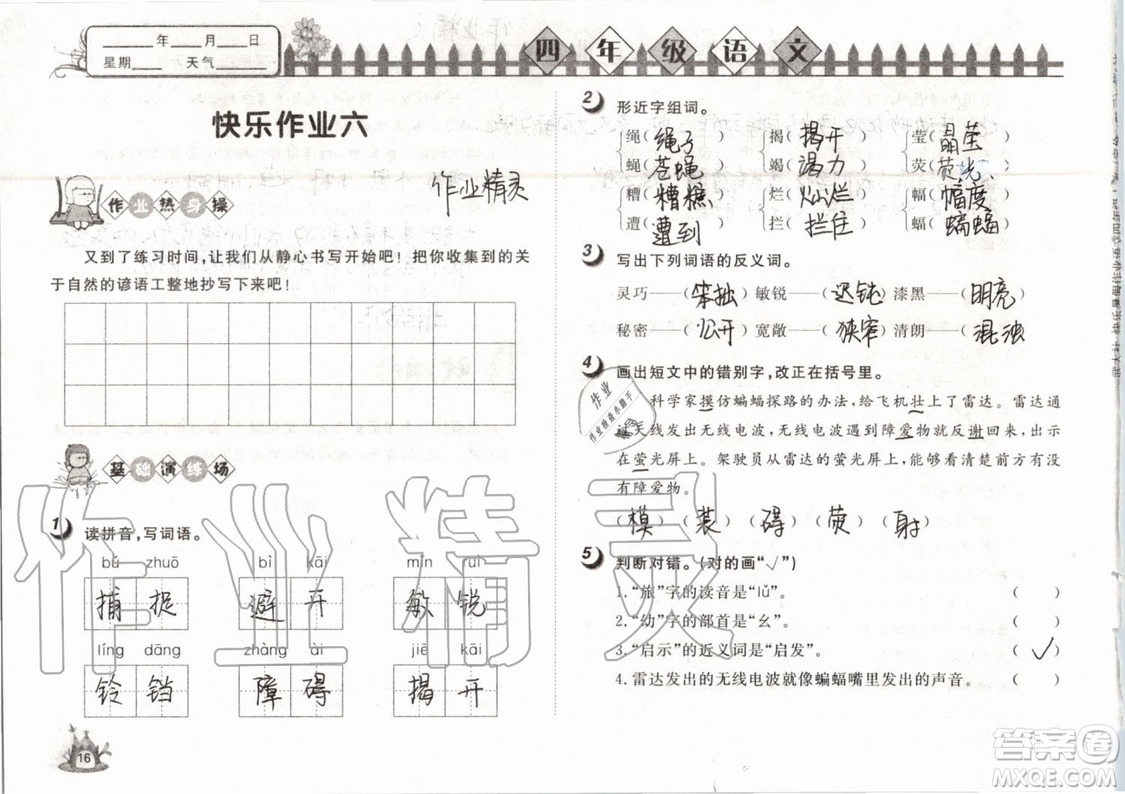 ____年____月____日
星期____ 天气____
四年级语文
快乐作业六
作业精灵
作业热身操
又到了练习时间，让我们从静心书写开始吧！把你收集到的关
于自然的谚语工整地抄写下来吧！
基础演练场
1 读拼音，写词语。
bǔ zhuō bì kāi mǐn ruì
捕捉 避开 敏锐
líng dāng zhàng ài jiē kāi
铃铛 障碍 揭开
16
2 形近字组词。
绳（绳子） 揭（揭开） 莹（晶莹）
蝇（苍蝇） 竭（竭力） 荧（荧光）
糟（糟糕） 烂（灿烂） 幅（幅度）
遭（遭到） 拦（拦住） 蝠（蝙蝠）
3 写出下列词语的反义词。
灵巧——（笨拙） 敏锐——（迟钝） 漆黑——（明亮）
秘密——（公开） 宽敞——（狭窄） 清朗——（混浊）
4 画出短文中的错别字，改正在括号里。
科学家摸仿蝙蝠探路的办法，给飞机壮上了雷达。雷达通
过天线发出无线电波，无线电波遇到障爱物就反谢回来，出示
在萤光屏上。架驶员从雷达的萤光屏上，能够看清楚前方有没
有障爱物。
（模）（装）（碍）（荧）（射）
5 判断对错。（对的画“√”）
1. “旅”字的读音是“lǚ”。 （ ）
2. “幼”字的部首是“幺”。 （ ）
3. “启示”的近义词是“启发”。 （√）
4. 雷达发出的无线电波就像蝙蝠嘴里发出的声音。 （ ）
作业
作业检查小助手
作业精灵
答案圈
MXQE.COM